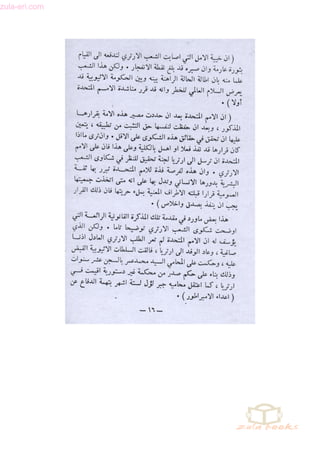 zula-eri.com
( ان خيبة الامل التي اصابت الشعب الارتري لتدفعه الى القيام
بثورة عارمة وان صبره قد بلغ نقطة الانفجار . ولكن هذا الشعب
علما منه بان اطالة الحالة الراهنة بينه وبين الحكومة الاثيوبية قد
يعرض السلام العالمي للخطر وانه قد قرر مناشدة الامم المتحدة
أولا ) .
( ان الامم المتحدة بعد ان حددت مصير هذه الامة بقرارها
المذكور ، وبعد ان حفظت لنفسها حق التثبت من تطبيقه ، يتعين
عليها ان تحقق في حقائق هذه الشكوى على الاقل . وان ترى ماإذا
كان قرارها قد نفذ فعلا او اهمل بالكلية وعلى هذا فان على الامم
المتحدة ان ترسل الى ارتريا لجنة تحقيق للنظر في شكاوى الشعب
الارتري . وان هذه لفرصة فذة للامم المتحدة تبرر بها ثقة
البشرية بدورها الانساني وتدل بها على انه متى اتخذت جمعيتها
العمومية قرارا قبلته الاطراف المعنية بملء حريتها فان ذلك القرار
يجب ان ينفذ بصدق واخلاص ) .
هذا بعض ماورد في مقدمة تلك المذكرة القانونية الرائعة التي
اوضحت شكوى الشعب الارتري توضيحا تاما . ولكن الذي
يؤسف له ان الامم المتحدة لم تعر الطلب الارتري العادل اذنا
صاغية ، وعاد الوفد الى ارتريا ، فالقت السلطات الاثيوبية القبض
عليه ، وحكمت على المحامي السيد محمد عمر بالسجن عشر سنوات
وذلك بناء على حكم صدر من محكمة غير دستورية اقيمت في
ارتريا ، كما اعتقل محاميه جير لؤل لستة اشهر بتهمة الدفاع عن
( اعداء الامبراطور ) .
— ١٦ —
zula books